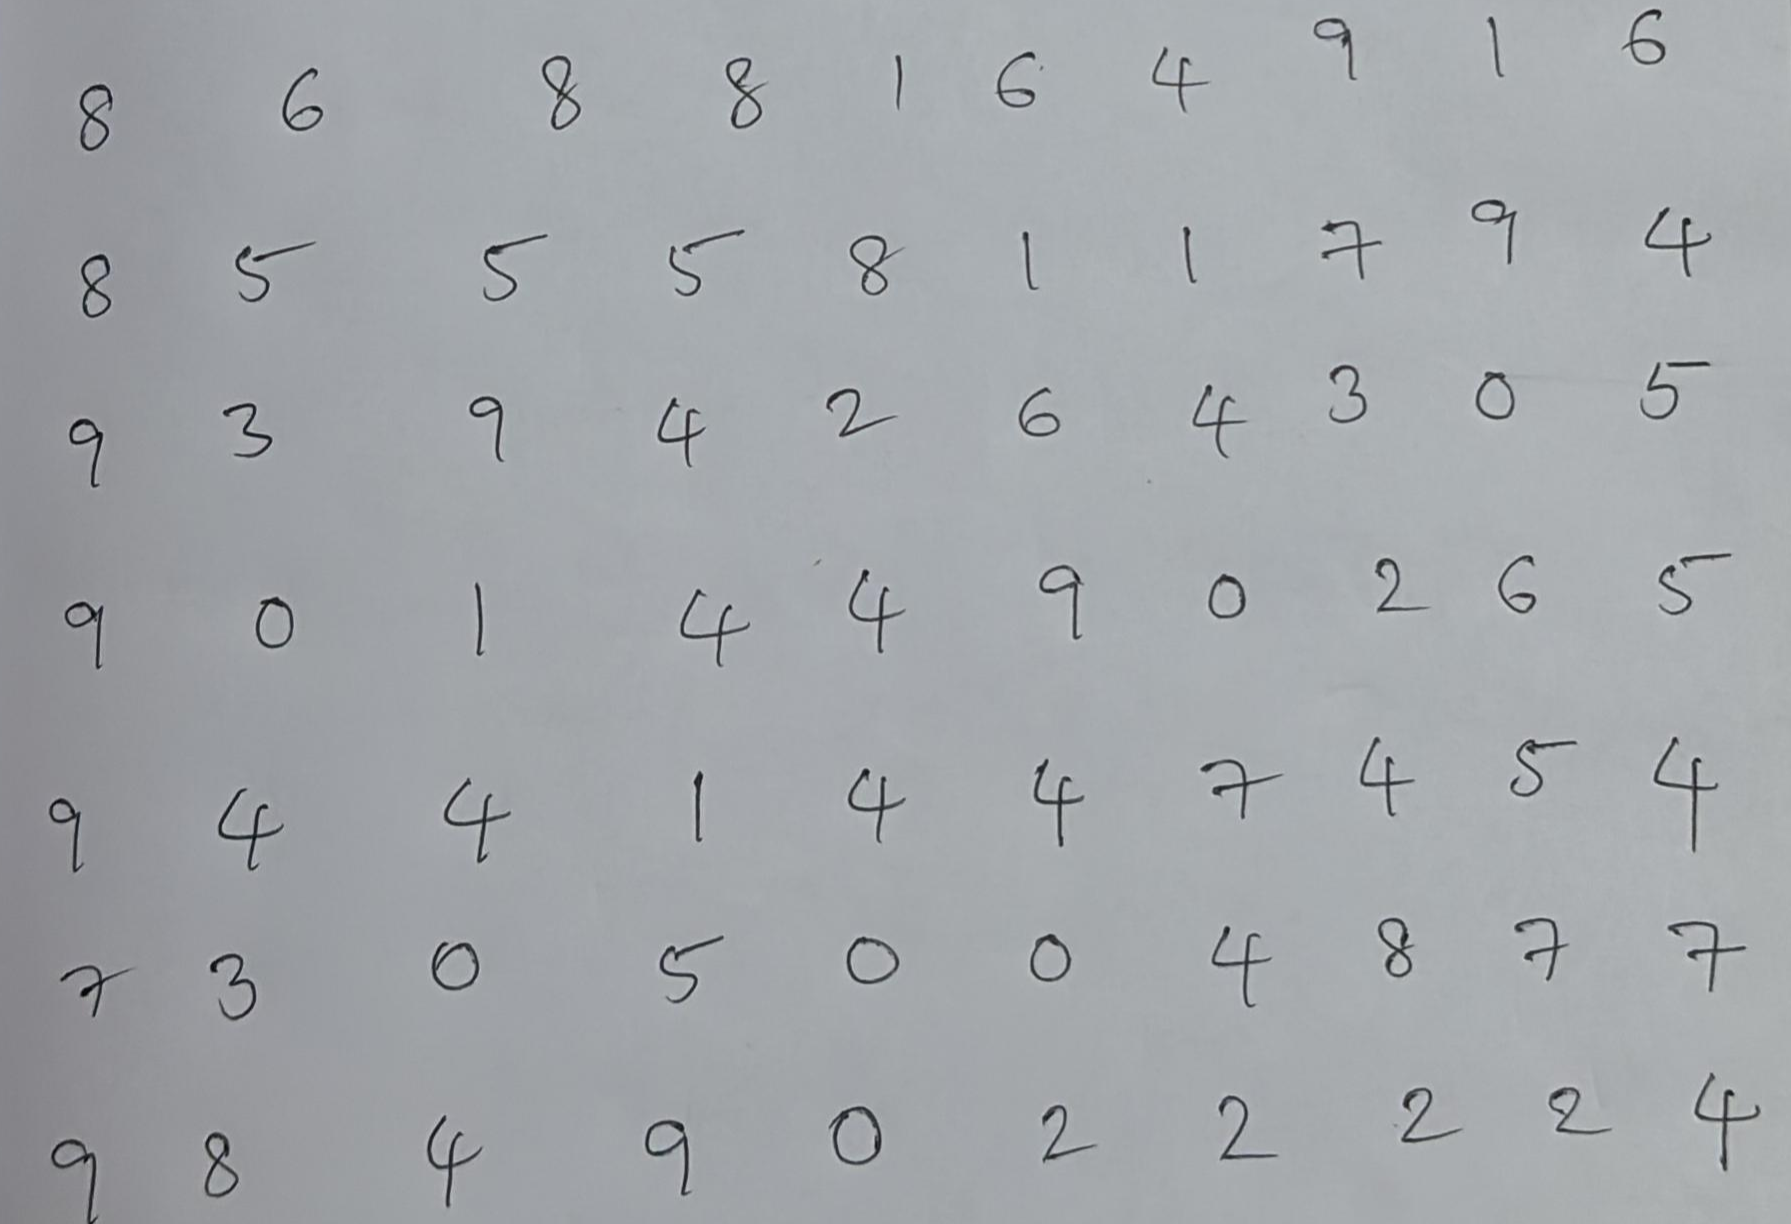 8 6 8 8 1 6 4 9 1 6
8 5 5 5 8 1 1 7 9 4
9 3 9 4 2 6 4 3 0 5
9 0 1 4 4 9 0 2 6 5
9 4 4 1 4 4 7 4 5 4
7 3 0 5 0 0 4 8 7 7
9 8 4 9 0 2 2 2 2 4